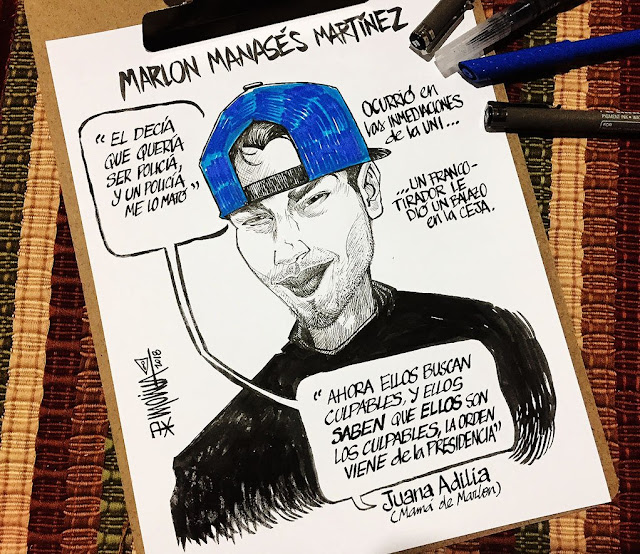 MARLON MANASÉS MARTÍNEZ
"EL DECÍA
QUE QUERÍA
SER POLICÍA,
Y UN POLICÍA
ME LO MATÓ"
OCURRIÓ en
las INMEDIACIONES
de la UNI...
...UN FRANCO-
TIRADOR LE
DIÓ UN BALAZO
en la CEJA.
"AHORA ELLOS BUSCAN
CULPABLES, Y ELLOS
SABEN QUE ELLOS SON
LOS CULPABLES, LA ORDEN
VIENE de la PRESIDENCIA"
Juana Adilia
(Mamá de Marlon)
2018